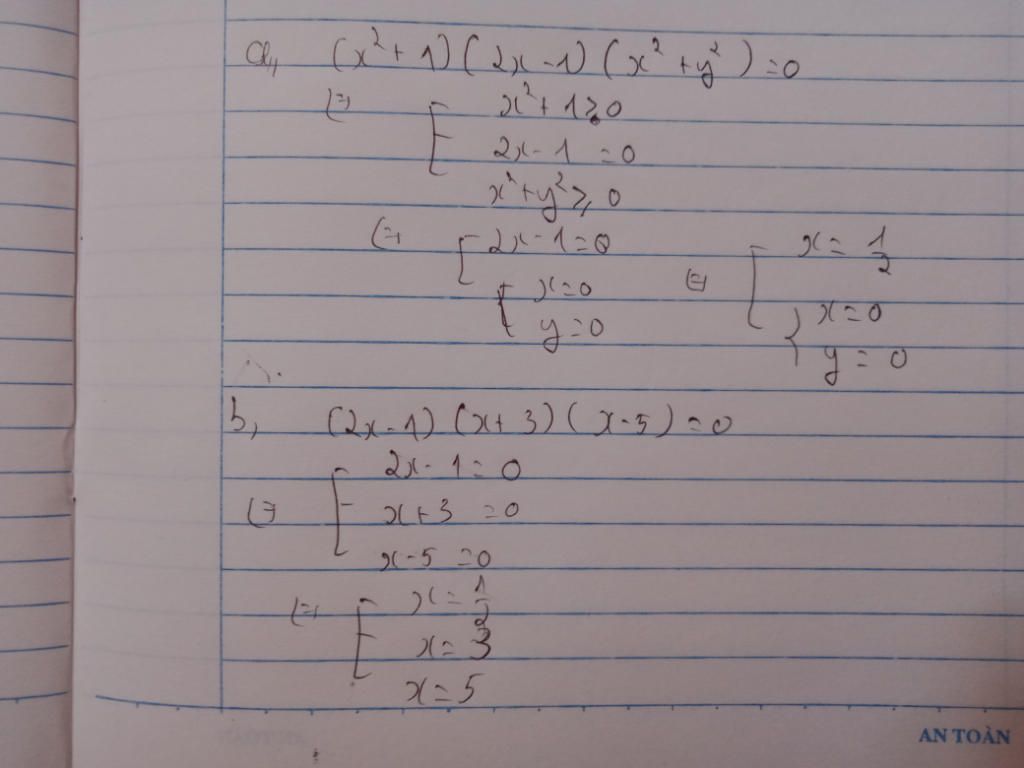 a,, (x² + 1)(2x - 1)(x² + y²) = 0
⇔ [ x² + 1 ≥ 0
2x - 1 = 0
x² + y² ≥ 0
⇔ [ 2x - 1 = 0 ⇔ [ x = 1/2
{ x = 0 { x = 0
y = 0 y = 0
b, (2x - 1)(x + 3)(x - 5) = 0
⇔ [ 2x - 1 = 0
x + 3 = 0
x - 5 = 0
⇔ [ x = 1/2
x = 3
x = 5
AN TOÀN